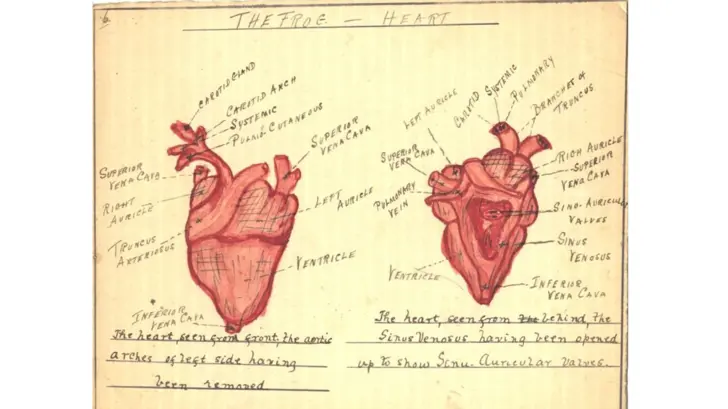 6.
THE FROG — HEART
CAROTID GLAND
CAROTID ARCH
SYSTEMIC
PULMO CUTANEOUS
SUPERIOR
VENA CAVA
SUPERIOR
VENA CAVA
RIGHT
AURICLE
LEFT
AURICLE
TRUNCUS
ARTERIOSUS
VENTRICLE
INFERIOR
VENA CAVA
The heart, seen from front, the aortic
arches of left side having
been removed
LEFT AURICLE
CAROTID
SYSTEMIC
PULMONARY
BRANCHES OF
TRUNCUS
SUPERIOR
VENA CAVA
RIGH AURICLE
SUPERIOR
VENA CAVA
PULMONARY
VEIN
SINO-AURICULAR
VALVES
SINUS
VENOSUS
VENTRICLE
INFERIOR
VENA CAVA
The heart, seen from the behind, the
Sinus Venosus having been opened
up to show Sinu. Auricular valves.